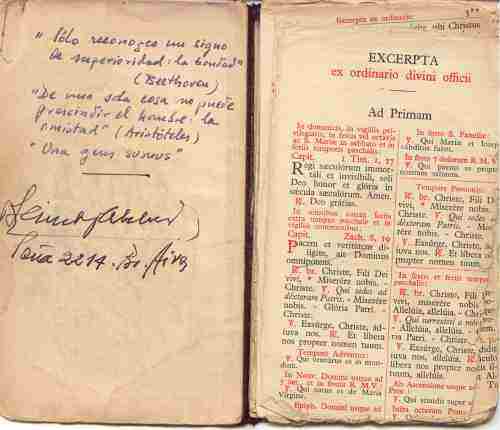 "Sólo reconozco un signo
de superioridad: la bondad"
(Beethoven)
"De una sola cosa no puede
prescindir el hombre: la
amistad" (Aristóteles)
"Una gens sumus"
Peña 2214. Bs Aires
Excerpta ex ordinario
tibi Christus
EXCERPTA
ex ordinario divini officii
Ad Primam
In dominicis, in vigiliis pri-
vilegiatis, in festis vel octavis
ac S. Mariæ in sabbato et in
feriis temporis paschalis:
Capit. I Tim. 1, 17
Regi sæculórum immor-
táli et invisíbili, soli
Deo honor et glória in
sǽcula sæculórum. Amen.
℟. Deo grátias.
In omnibus aliis feriis
extra tempus paschale et in
vigiliis communibus:
Capit. Zach. 8, 19
Pacem et veritátem di-
lígite, ait Dóminus
omnípotens.
℟. br. Christe, Fili Dei
vivi, * Miserére nobis. -
Christe. ℣. Qui sedes ad
déxteram Patris. - Miserére
nobis. - Glória Patri. -
Christe.
℣. Exsúrge, Christe, ád-
juva nos. ℟. Et líbera
nos propter nomen tuum.
Tempore Adventus:
℣. Qui ventúrus es in mun-
dum.
In Nativ. Domini usque ad
et in festis B. M. V.:
℣. Qui natus es de María
Vírgine.
Epiph. Domini usque ad
In festo S. Familiæ:
℣. Qui Maríæ et Joseph
In festo 7 dolorum B. M. V.
Tempore Passionis:
℟. br. Christe, Fili Dei
vivi, * Miserére nobis. -
Christe. ℣. Qui sedes ad
déxteram Patris. - Miserére
nobis. - Christe.
℣. Exsúrge, Christe, ád-
juva nos. ℟. Et líbera
nos propter nomen tuum.
In festis et feriis temporis
paschalis:
℟. br. Christe, Fili Dei
vivi, Miserére nobis.
Allelúia, allelúia. - Chri-
℣. Qui surrexísti a mórtuis.
- Allelúia, allelúia. - Glória
Patri. - Christe.
℣. Exsúrge, Christe, ád-
juva nos, allelúia. ℟. Et
líbera nos propter nomen
tuum, allelúia.
Ab Ascensione usque ad